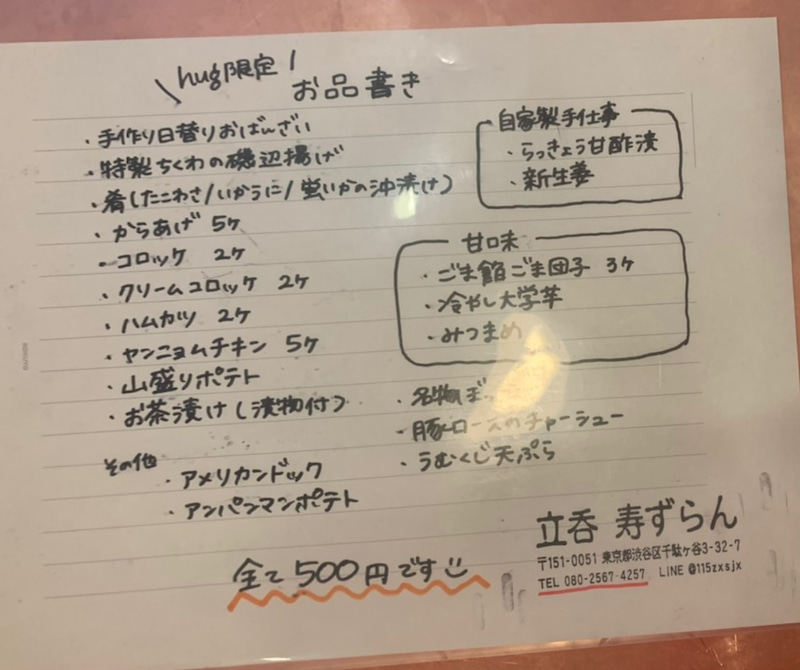 \hug限定/
お品書き
・手作り日替りおばんざい
・特製ちくわの磯辺揚げ
・肴(たこわさ/いかうに/蛍いかの沖漬け)
・からあげ 5ヶ
・コロッケ 2ヶ
・クリームコロッケ 2ヶ
・ハムカツ 2ヶ
・ヤンニョムチキン 5ヶ
・山盛りポテト
・お茶漬け(漬物付)
その他
・アメリカンドック
・アンパンマンポテト
自家製手仕事
・らっきょう甘酢漬
・新生姜
甘口味
・ごま餡ごま団子 3ヶ
・冷やし大学芋
・みつまめ
・名物
・豚ロースのチャーシュー
・うむくじ天ぷら
全て500円です
立呑 寿ずらん
〒151-0051 東京都渋谷区千駄ヶ谷3-32-7
TEL 080-2567-4257 LiNE @115zxsjx